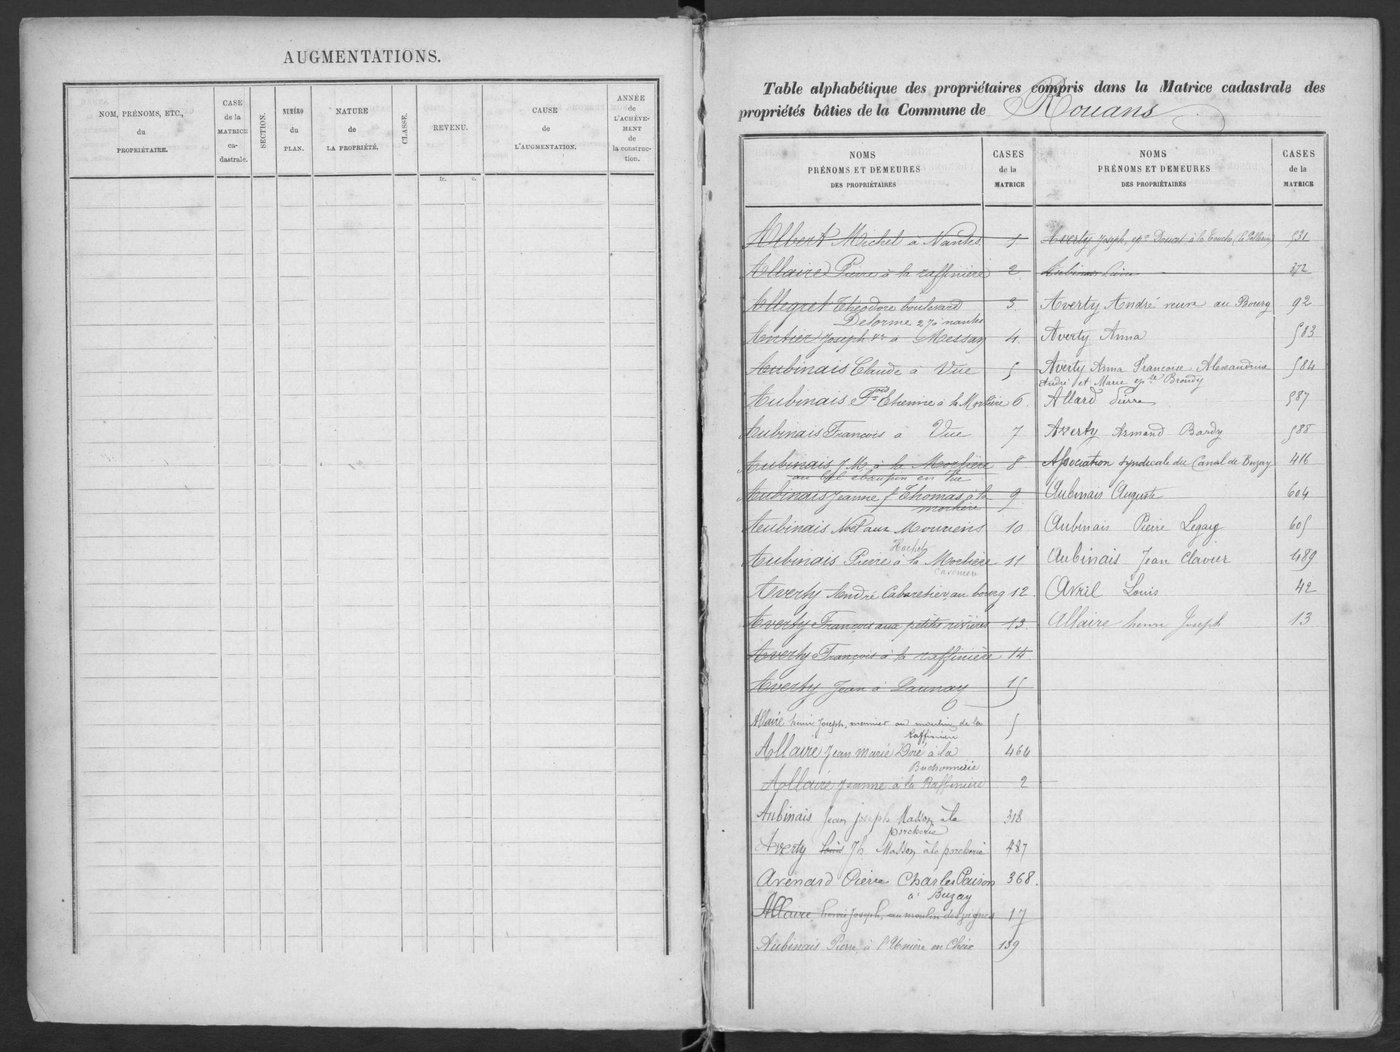 AUGMENTATIONS.
NOM, PRÉNOMS, ETC.,
du
PROPRIÉTAIRE.
CASE
de la
MATRICE
ca-
dastrale.
SECTION.
NUMÉRO
du
PLAN.
NATURE
de
LA PROPRIÉTÉ.
CLASSE.
REVENU.
CAUSE
de
L'AUGMENTATION.
ANNÉE
de
L'ACHÈVE-
MENT
de
la construc-
tion.
fr. c.
Table alphabétique des propriétaires compris dans la Matrice cadastrale des
propriétés bâties de la Commune de Rouans
NOMS
PRÉNOMS ET DEMEURES
DES PROPRIÉTAIRES
CASES
de la
MATRICE
Albert Michel à Nantes 1
Allaire Pierre à la raffinière 2
Allegret Théodore boulevard 3
Delorme 27 nantes
Joseph à Messan 4
Aubinais Claude à Vue 5
Aubinais Etienne à la Morlière 6
Aubinais François à Vue 7
Aubinais J M à la Morlière 8
en Vue
Aubinais Jeanne f Thomas à la 9
morlière
Aubinais Noel aux Mourens 10
Aubinais Pierre à la Morlière 11
Averty André Cabaretier au bourg 12
Averty François aux petits rivières 13
Averty François à la raffinière 14
Averty Jean à Launay 15
Allaire henri Joseph, meunier au moulin de la 5
Raffinière
Allaire Jean Marie Doré à la 464
Buchonnière
Allaire Jeanne à la Raffinière 2
Aubinais Jean Joseph Masson à la 318
porcherie
Averty Louis Jh Masson à la porcherie 487
Avenard Pierre Charles 368
à Buzay
Allaire henri Joseph, au moulin des 17
Aubinais Pierre, à en Cheix 139
NOMS
PRÉNOMS ET DEMEURES
DES PROPRIÉTAIRES
CASES
de la
MATRICE
Averty Joseph, à la 531
Aubinais Pierre 372
Averty André veuve au Bourg 92
Averty Anna 583
Averty Anna Françoise Alexandrine 584
André et Marie
Allard Pierre 587
Averty Armand Bardy 588
Association syndicale du Canal de Buzay 416
Aubinais Auguste 604
Aubinais Pierre 605
Aubinais Jean Clavier 489
Avril Louis 42
Allaire henri Joseph 13